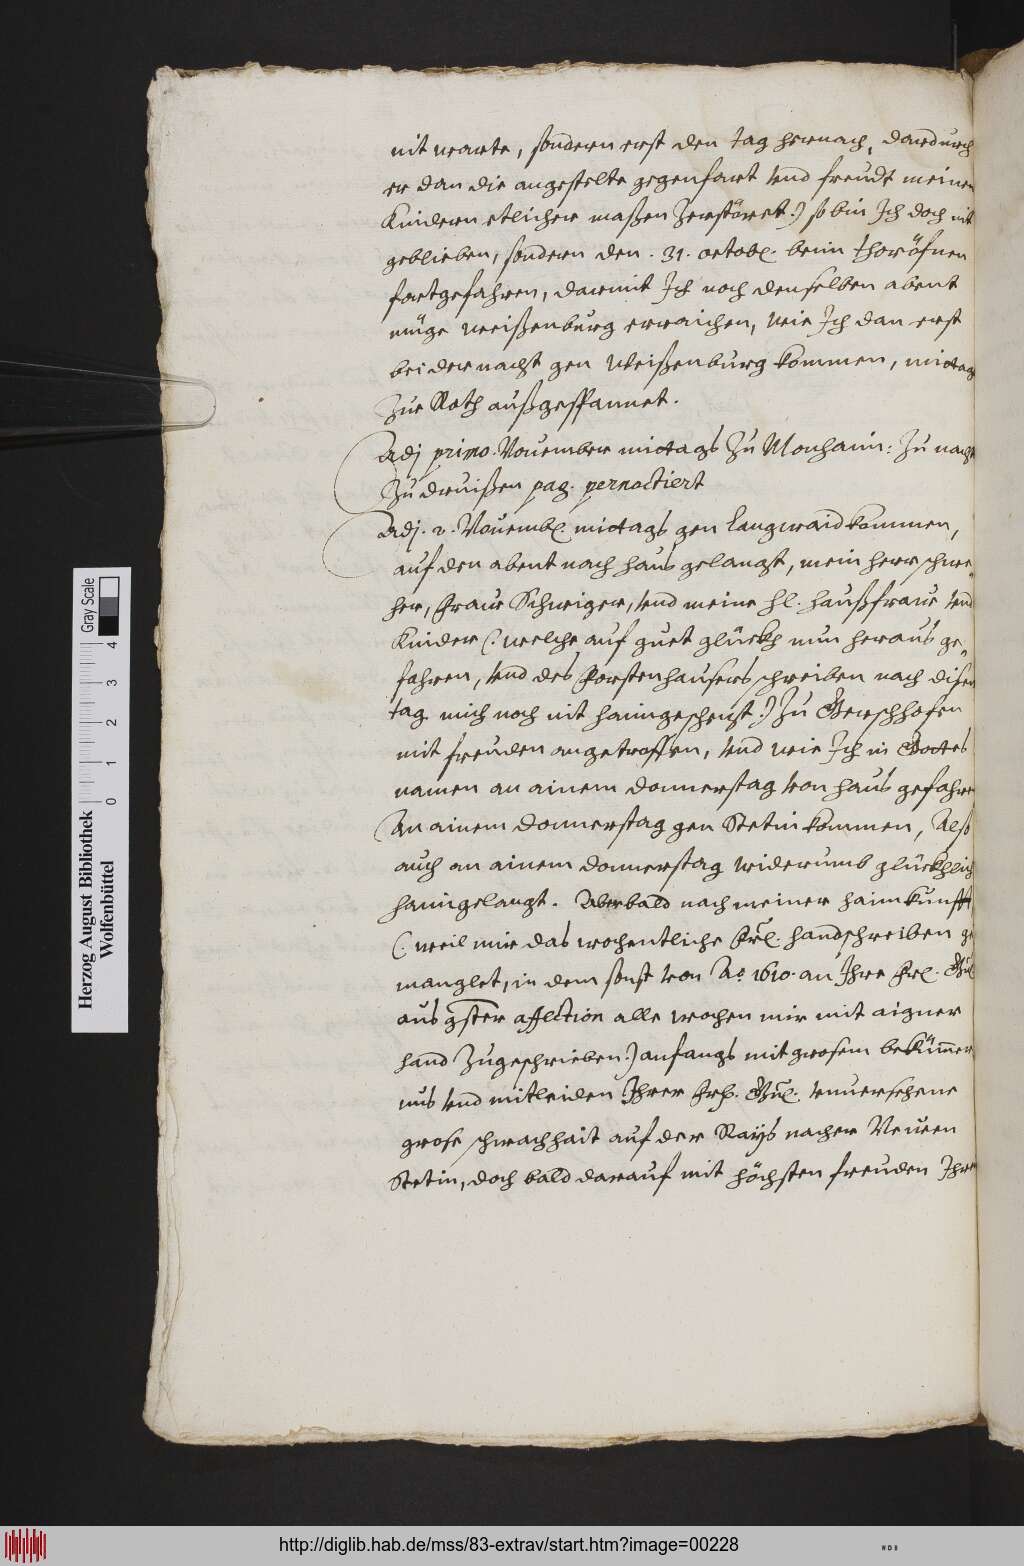 nit warte, sondern erst den tag hernach, dardurch
er dan die angestelte gegenfart vnd freudt meinen
Kindern etlicher maßen Zerstöret.) so bin Ich doch nit
geblieben, sondern den .31. octob. beim thoröfnen
fortgefahren, darmit Ich noch denselben abent
müge Weißenburg erraichen, wie Ich dan erst
bei der nacht gen Weißenburg kommen, mittag
Zue Roth außgespannet.
Adj primo. Nouember mittags Zu Monhaim: Zu nacht
Zu druißen pag. pernoctiert
Adj. 2. Nouemb. mittags gen Langwaid kommen,
auf den abent nach haus gelangt, mein herr schwe-
her, Fraw Schwiger, vnd meine hl. haußfraw vnd
Kinder (: welche auf guet glückh nun heraus ge-
fahren, vnd des Forstenhausers schreiben nach disen
tag mich noch nit haimgeschenzt:) Zu Gerschhofen
mit freuden angetroffen, vnd wie Ich in Gottes
namen an ainem donnerstag von haus gefahren
An ainem donnerstag gen Stetin kommen, Also
auch an ainem donnerstag widerumb glückhlich
haimgelangt. Aber bald nach meiner haimkunfft
(: weil mir das wochentliche Frl. handschreiben ge
manglet, in dem sonst von Ao 1610. an Ihre Frl. Gn̄
aus gster affection alle wochen mir mit aigner
hand Zugeschrieben:) anfangs mit grosem bekümmer
nus vnd mitleiden Ihrer Frl. Gn̄. vnuersehene
grose schwachhait auf der Rays nacher Newen
Stetin, doch bald darauf mit höchsten freuden Ihre
Herzog August Bibliothek
Wolfenbüttel
0 1 2 3 4
Gray Scale
http://diglib.hab.de/mss/83-extrav/start.htm?image=00228